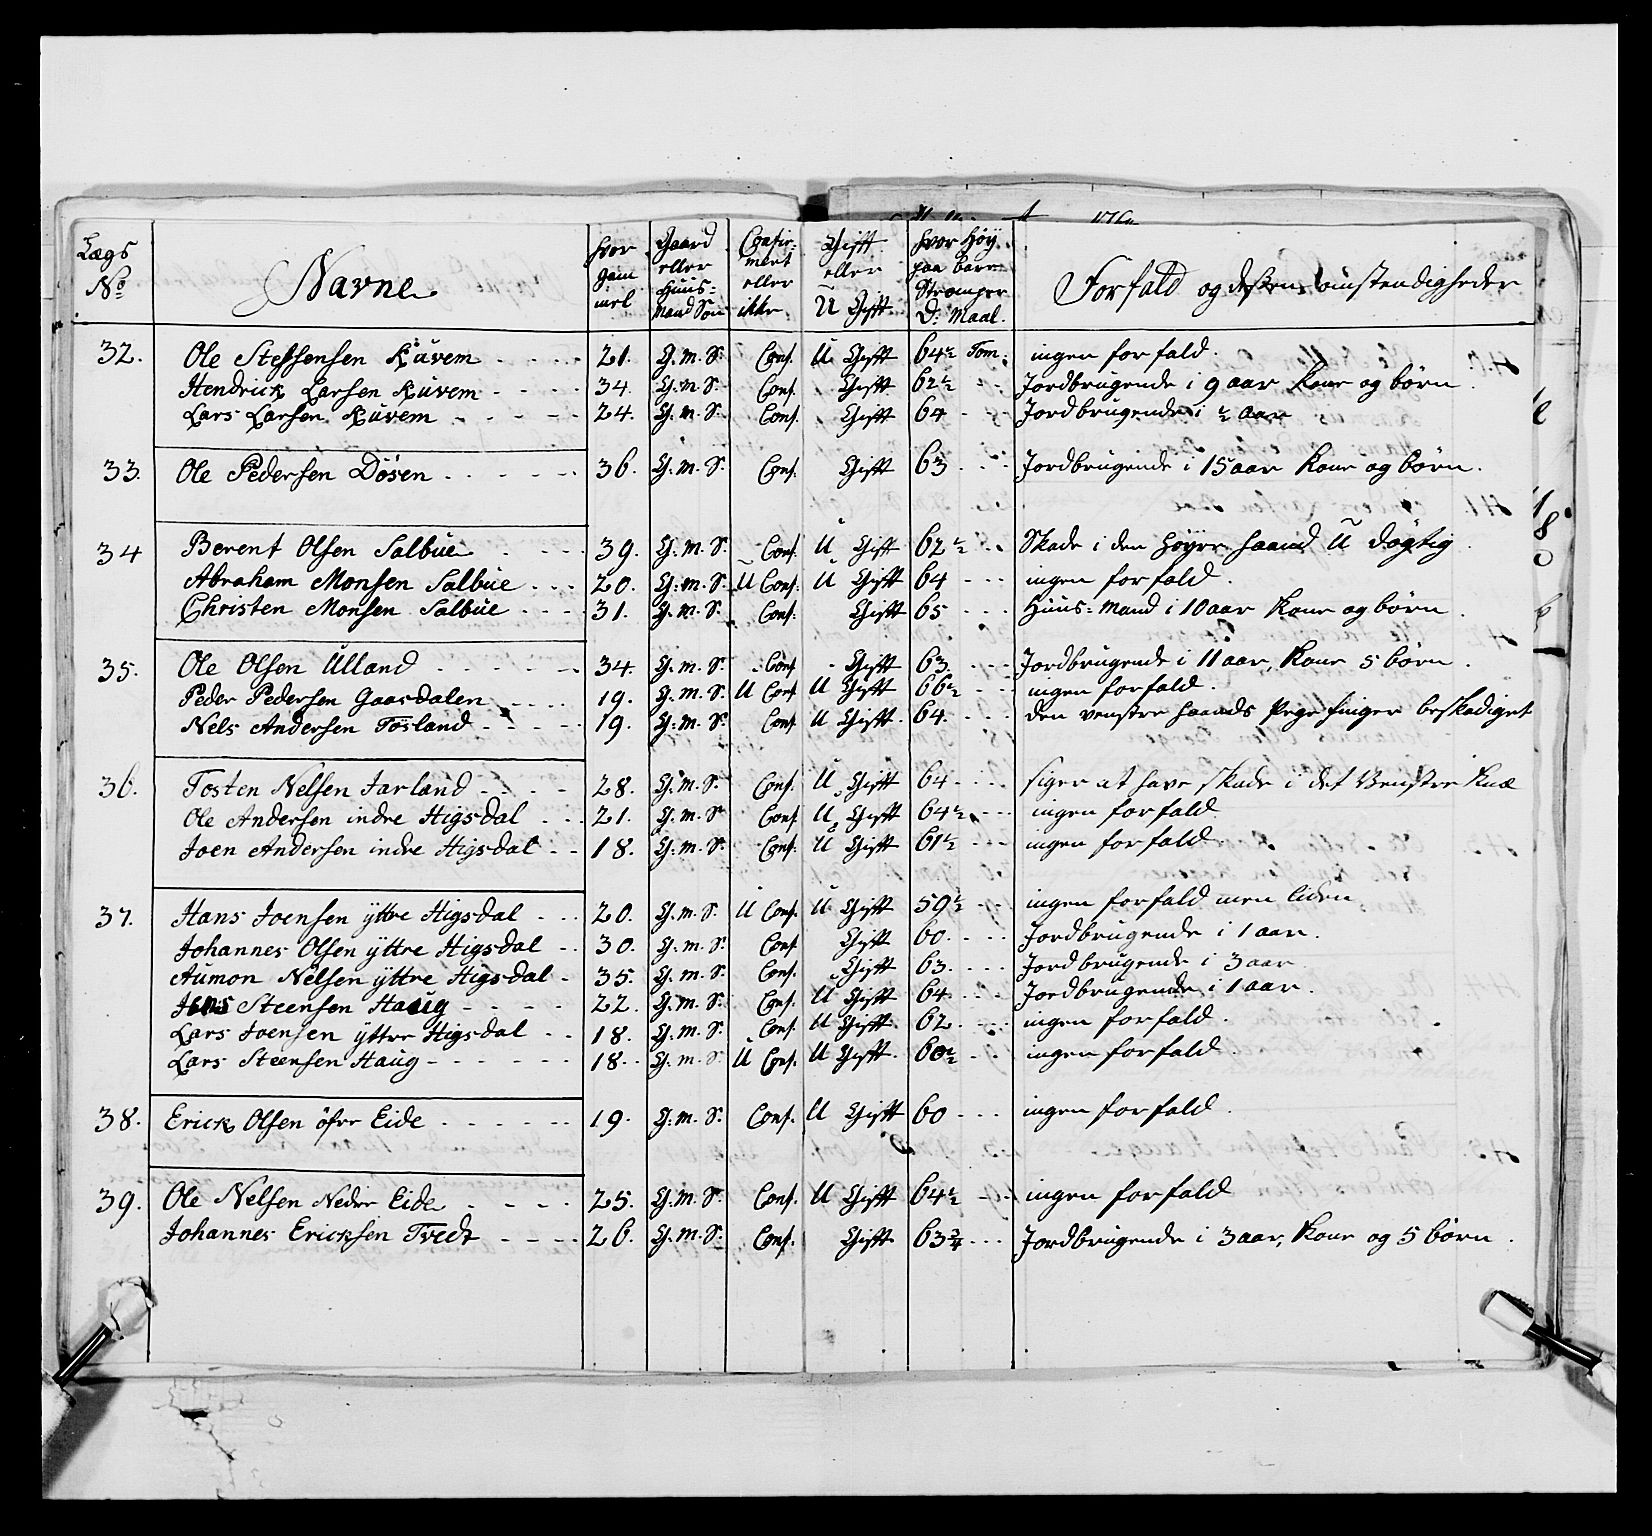 Lægs No Navne hvor gammel Gaard eller Huus-Mand Søn Confirmert eller ikke Gift eller U Gift hvor høy paa barre Strømper D: Maal. Forfald og dessen omstendigheder
32. Ole Steffensen Kuvem 21. G. M. S. Conf. U Gifft 64½ Tom. ingen forfald.
Hendrick Larsen Kuvem 34. G. M. S. Conf. Gifft 62½ Jordbrugende i 9 aar Kone og børn
Lars Larsen Kuvem 24. G. M. S. Conf. Gifft 64 Jordbrugende i ½ aar
33. Ole Pedersen Døsen 36. G. M. S. Conf. Gifft 63 Jordbrugende i 15 aar Kone og børn.
34 Berent Olsen Salbue 39. G. M. S. Conf. U Gift 62½ Skade i den høyre haand U døgtig
Abraham Monsen Salbue 20. G. M. S. U Conf. U Gifft 64 ingen forfald.
Christen Monsen Salbue 31. G. M. S. Conf. Gifft 65 Huus-Mand i 10 aar Kone og børn
35. Ole Olsen Ulland 34. G. M. S. Conf Gifft 63. Jordbrugende i 11 aar, Kone 5 børn.
Peder Pedersen Gaasdalen 19. G. M. S. U Conf U Gifft 66½ ingen forfald.
Nels Andersen Tøsland 19. G. M. S. Conf. U Gifft. 64. den venstre haands Pege finger beskadiget
36. Tosten Nelsen Jarland 28. G. M. S. Conf. U Gifft 64 siger at have skade i det Venstre Knæ
Ole Andersen indre Higsdal 21. G. M. S Conf. U Gifft 64½ ingen forfald
Joen Andersen indre Higsdal 18. G. M. S. Conf. U Gifft 61½ ingen forfald
37. Hans Joensen yttre Higsdal 20. G. M. S. U Conf. U Gifft 59½ ingen forfald men liden
Johannes Olsen yttre Higsdal 30. G. M. S. Conf Gifft 60. Jordbrugende i 1 aar.
Aumon Nelsen yttre Higsdal 35. G. M. S. Conf. Gifft 63. Jordbrugende i 3 aar
Jens Steensen Haug 22. G. M. S. Conf. U Gifft 64 Jordbrugende i 1 aar.
Lars Joensen yttre Higsdal 18. G. M. S. Conf. U Gifft. 62. ingen forfald.
Lars Steensen Haug 18. G. M. S U Conf. U Gifft. 60½ ingen forfald
38. Erick Olsen øfre Eide 19. G. M. S. Conf. U Gifft 60 ingen forfald
39. Ole Nelsen Nedre Eide 25. G. M. S. Conf. U Gifft 64½ ingen forfald
Johannes Ericksen Tvedt 26. G. M. S. Conf. Gifft 63¾ Jordbrugende i 3 aar, Kone og 5 børn.